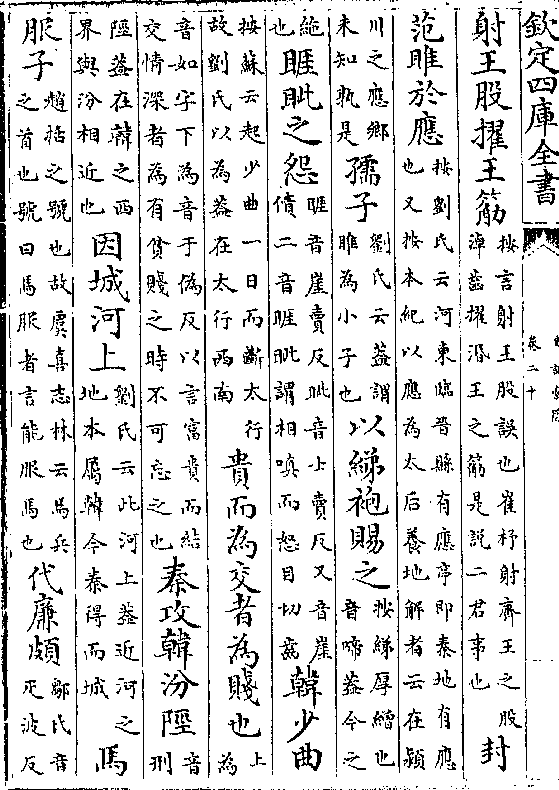 欽定四庫全書
卷二十
射王股擢王筋按言射王股誤也崔杼射齊王之股淖齒擢湣王之筋是説二君事也封
范雎於應按劉氏云河東臨晉縣有應亭即秦地有應也又按本紀以應為太后養地解者云在潁
川之應鄉未知孰是孺子劉氏云蓋謂雎為小子也以綈袍賜之按綈厚繒也音啼蓋今之
絁也睚眦之怨睚音崖賣反眦音士賣反又音崖債二音睚眦謂相嗔而怒目切齒韓少曲
按蘇云起少曲一日而斷太行故劉氏以為蓋在太行西南貴而為交者為賤也上為
音如字下為音于偽反以言富貴而結交情深者為有貧賤之時不可忘之也秦攻韓汾陘音刑
陘蓋在韓之西界與汾相近也因城河上劉氏云此河上蓋近河之地本屬韓今秦得而城馬
服子趙括之號也故虞喜志林云馬兵之首也號曰馬服者言能服馬也代廉頗鄒氏音匹波反